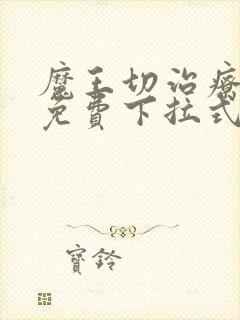 魔王切治療
免費下拉式
寶鈴